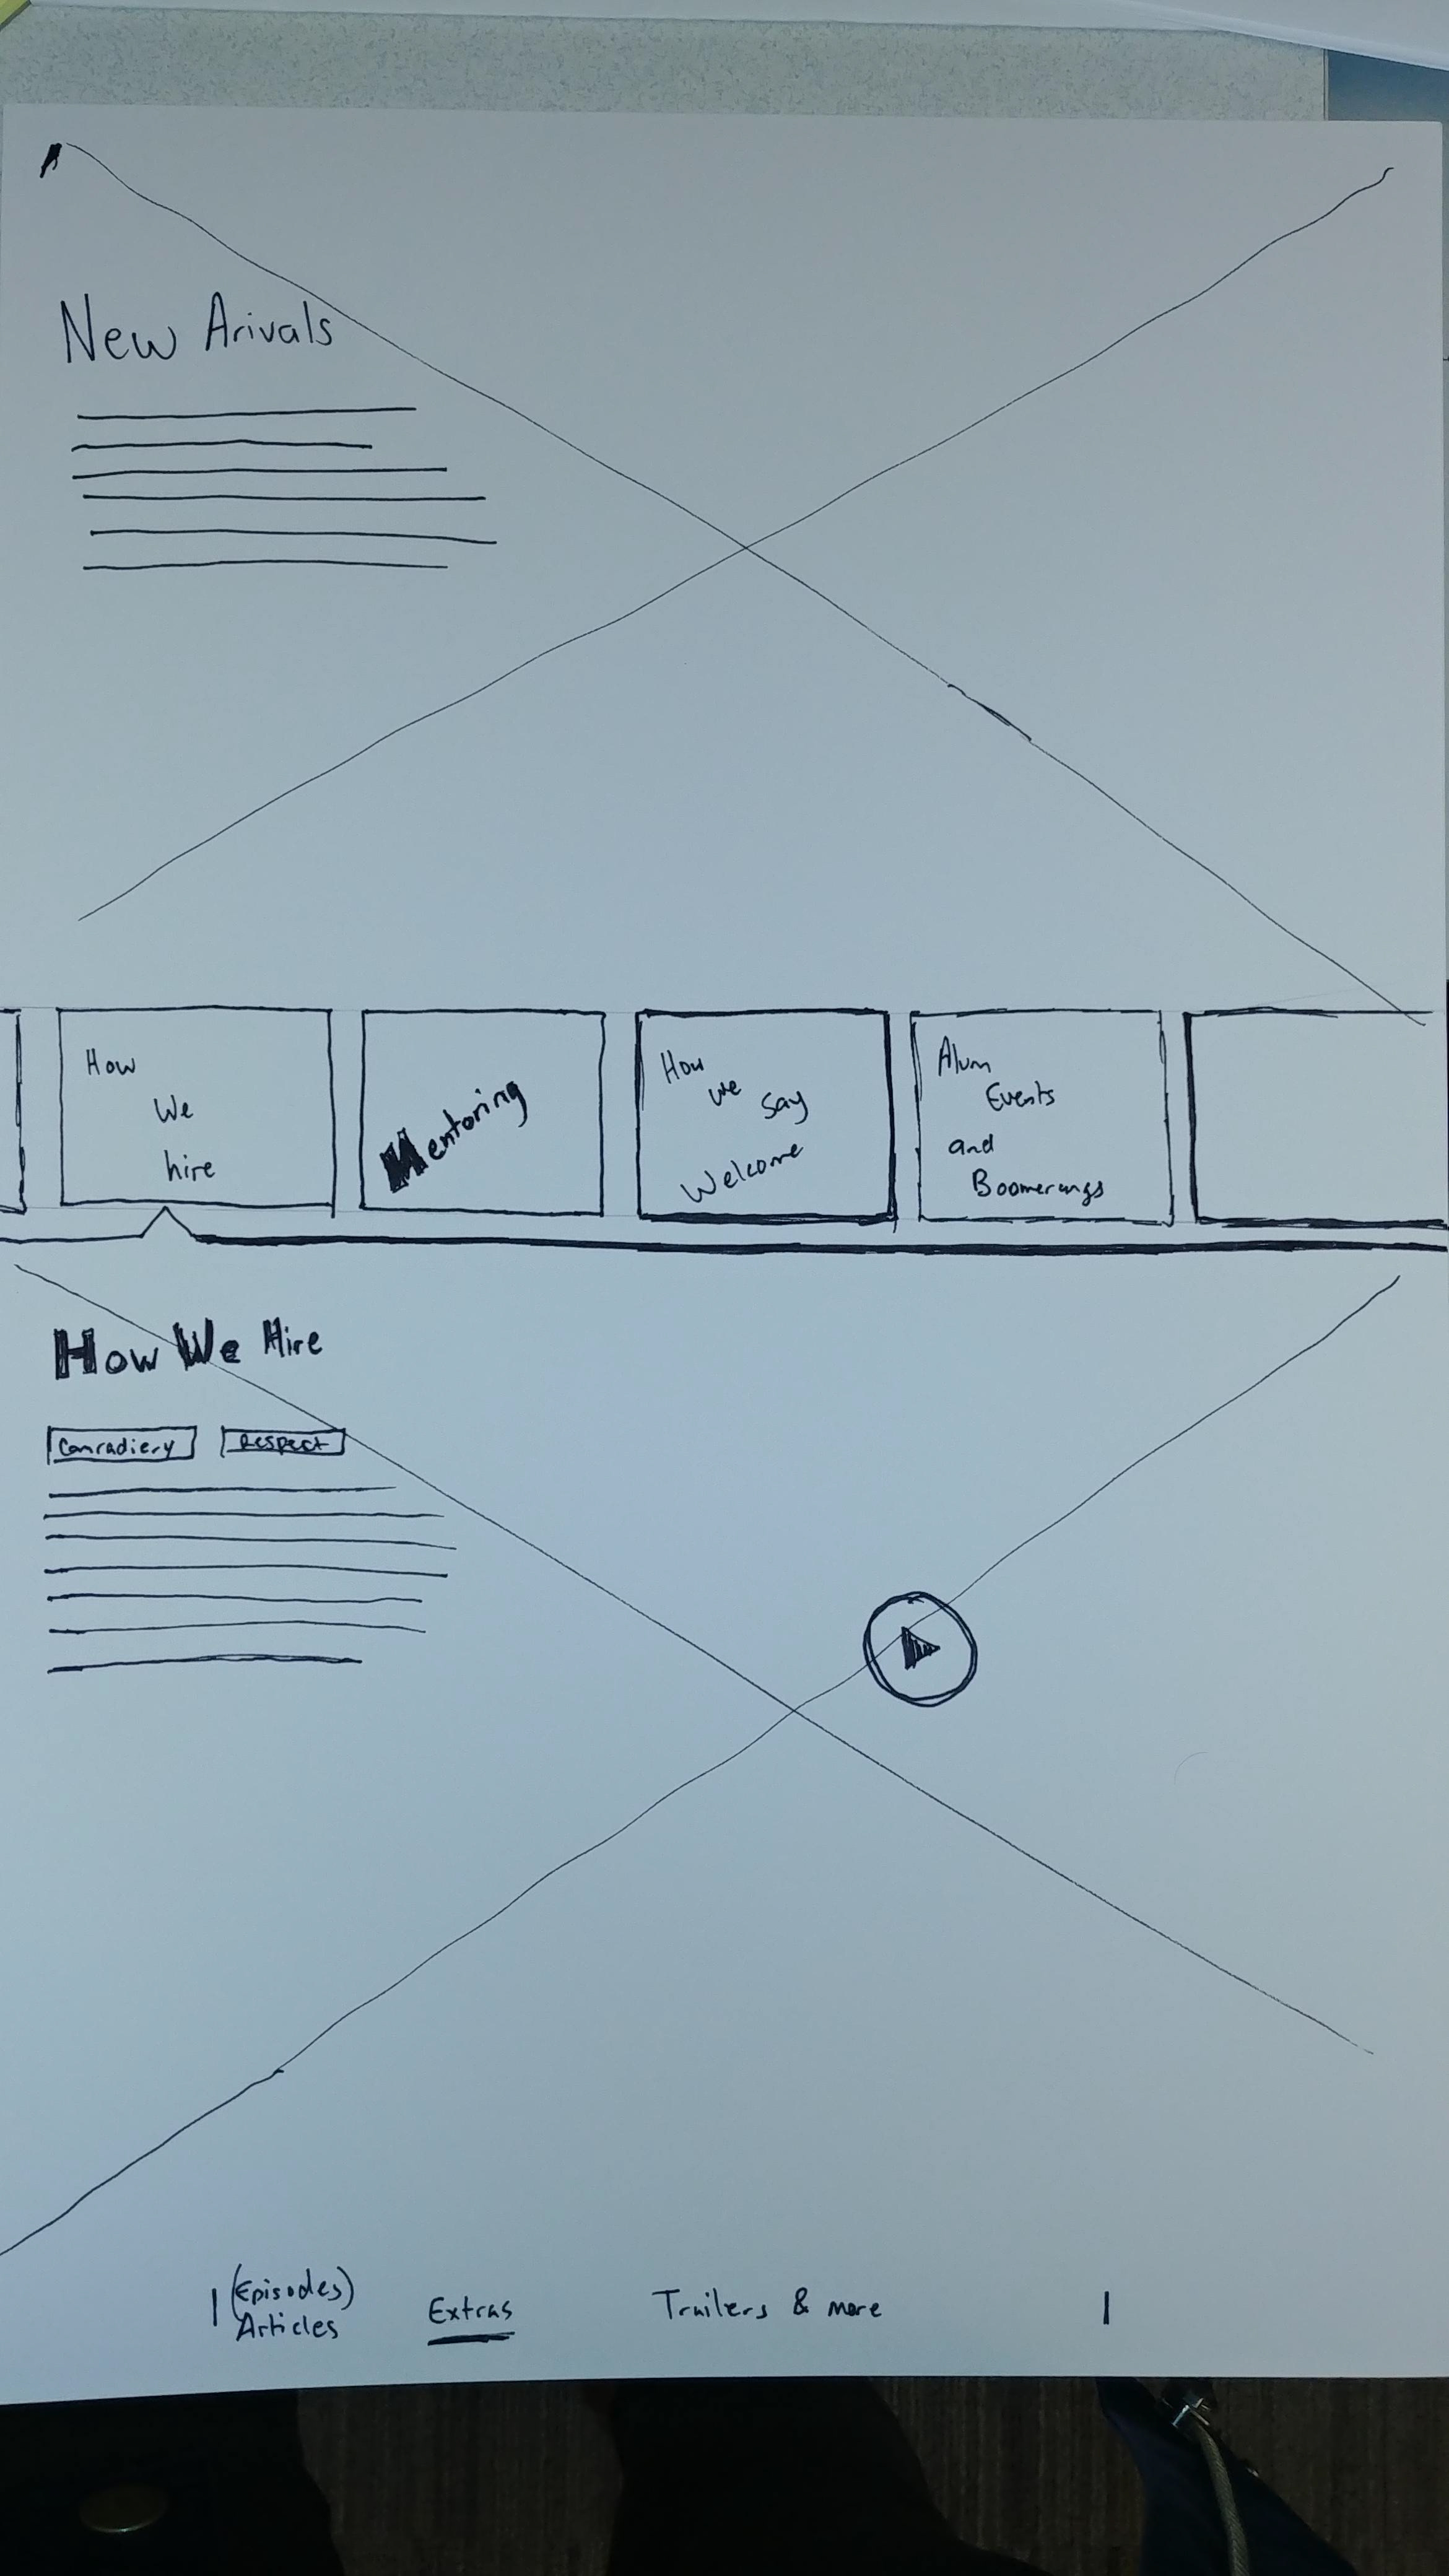 New Arivals
How
We
hire
Mentoring
How
we
say
Welcome
Alum
Events
and
Boomerangs
How We Hire
Comradiery
Respect
(Episodes)
Articles
Extras
Trailers & more